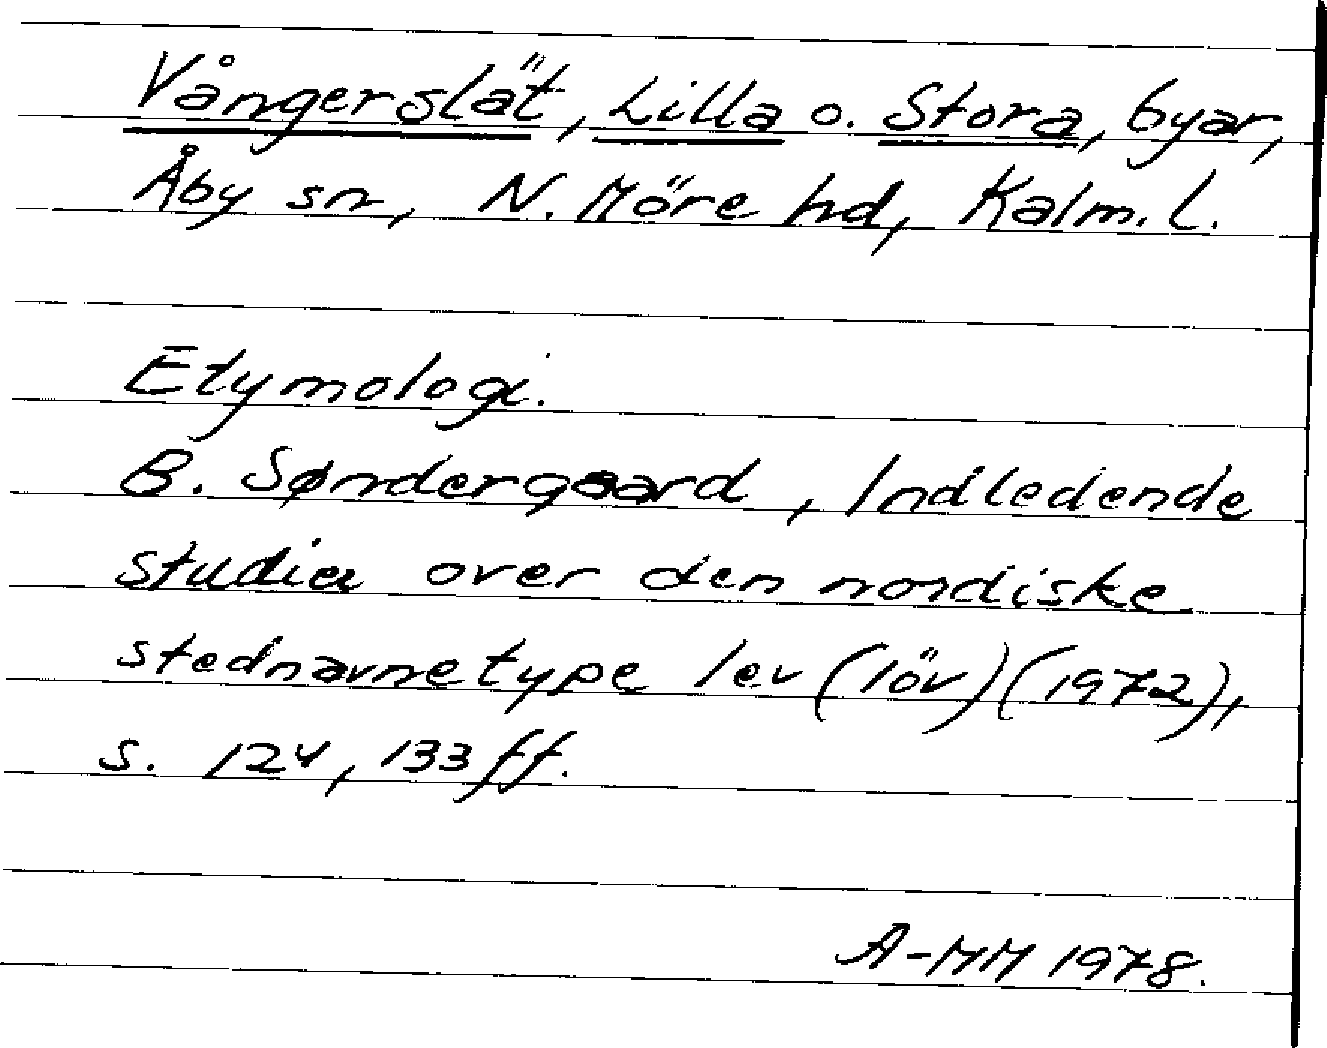 Vångerslät, Lilla o. Stora, byar,
Åby sn, N. Möre hd, Kalm. l.
Etymologi.
B. Søndergaard, Indledende
studier over den nordiske
stednavnetype lev (löv) (1972),
s. 124, 133 ff.
A-MM 1978.